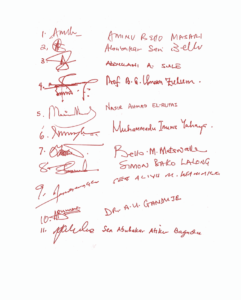 1. AMINU BELLO MASARI
2. Abubakar Sani Bello
3. ABDULLAHI A. SULE
4. Prof. B. G. Umara Zulum.
5. NASIR AHMAD EL-RUFAI
6. Muhammadu Inuwa Yahaya.
7. BELLO. M. MATAWALLE
8. SIMON BAKO LALONG
9. ALIYU M. WAMAKKO
10. DR A. U. GANDUJE
11. Sen Abubakar Atiku Bagudu